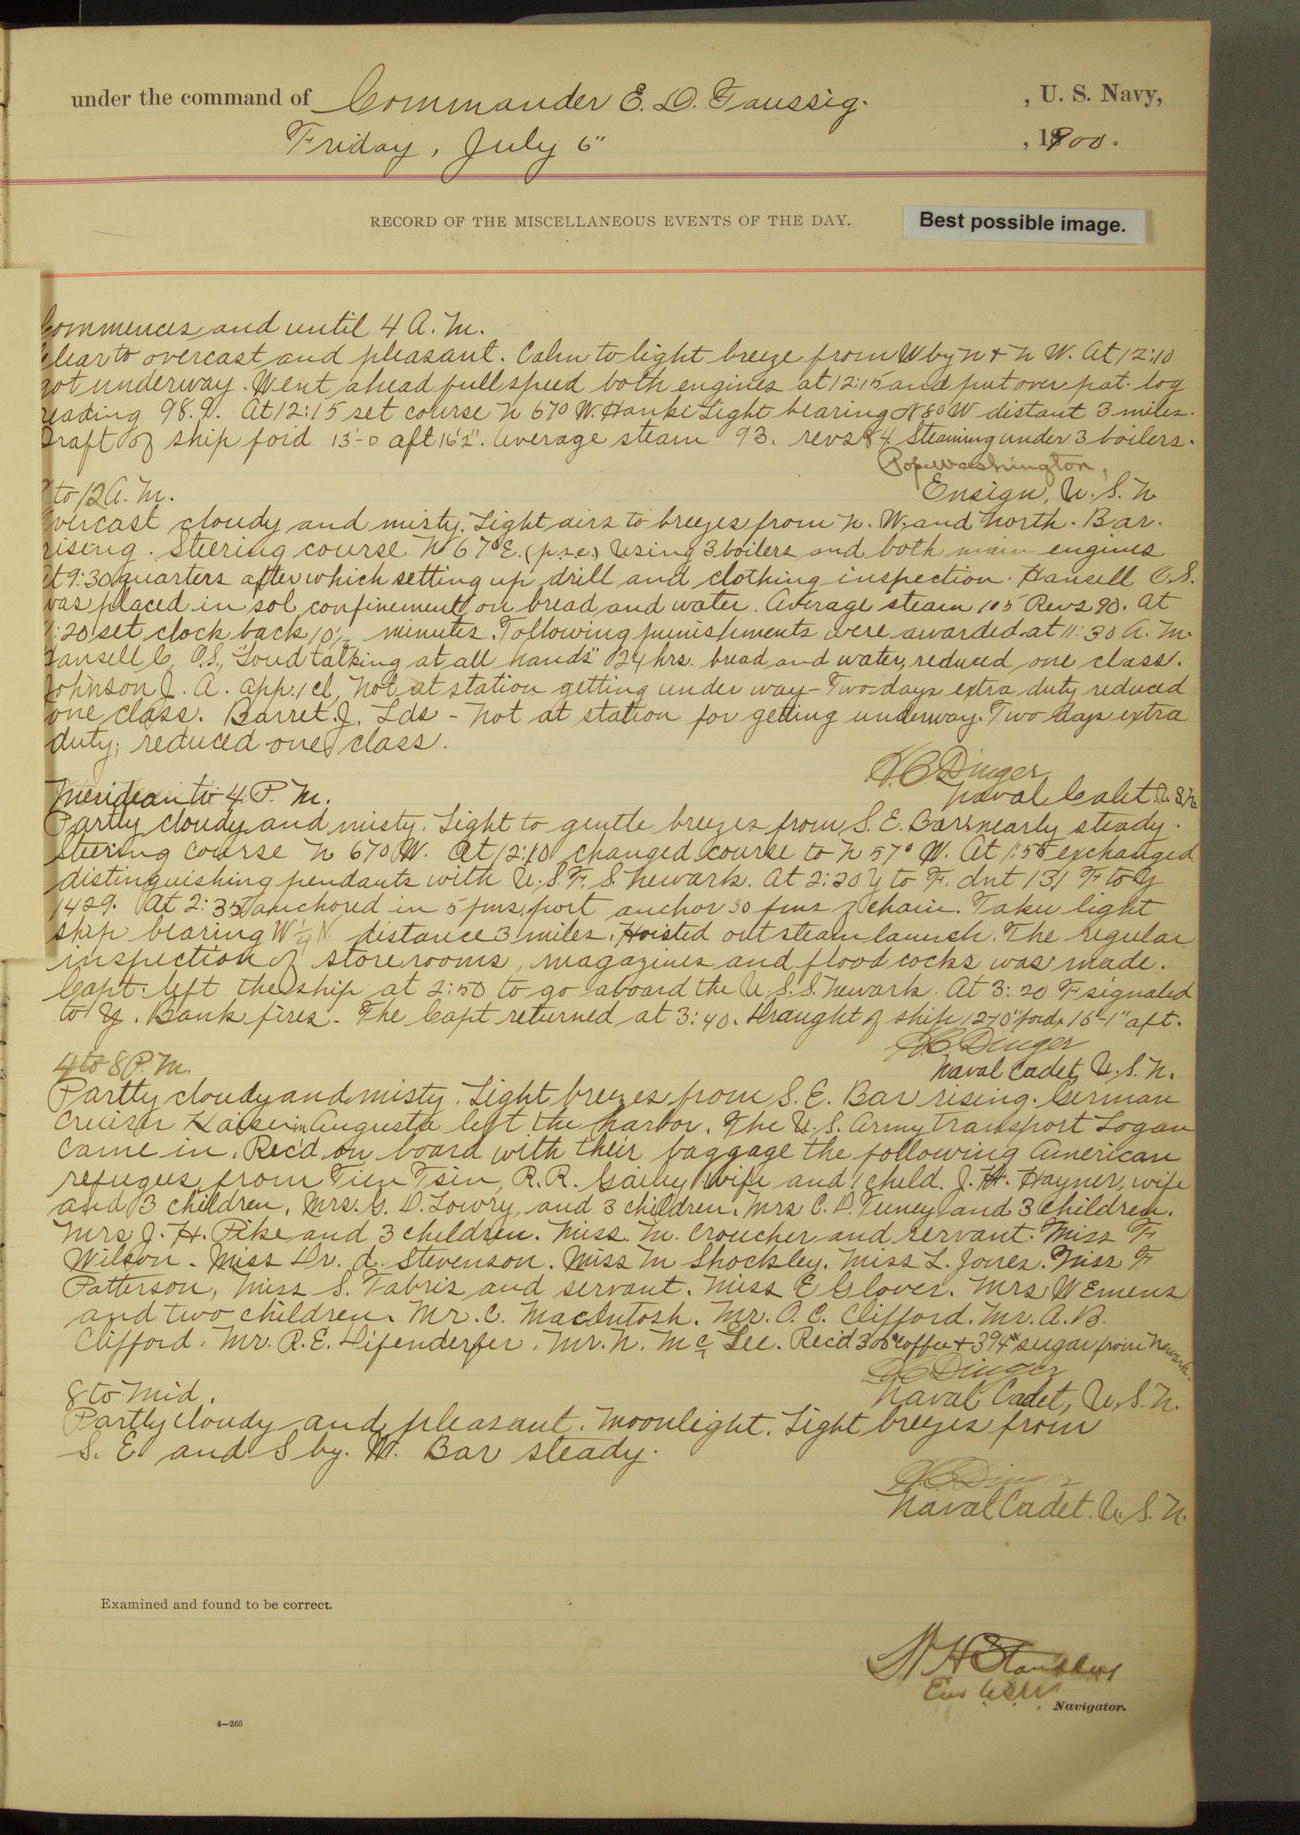 under the command of Commander E. D. Taussig. , U. S. Navy,
Friday, July 6" , 1900.
RECORD OF THE MISCELLANEOUS EVENTS OF THE DAY.
Best possible image.
Commences and until 4 A. M.
Clear to overcast and pleasant. Calm to light breeze from W by N + N W. At 12:10
got underway. Went ahead full speed both engines at 12:15 and put over pat. log
reading 98.9. At 12:15 set course N 67° W. Light bearing N 80 W distant 3 miles.
Draft of ship for'd 13'-0 aft 16'2". Average steam 93. revs 84. Steaming under 3 boilers.
Pope Washington,
Ensign, U. S. N.
to 12 A. M.
Overcast cloudy and misty. Light airs to breezes from N. W. and North. Bar.
rising. Steering course N 67° E. (p.s.c.) Using 3 boilers and both main engines
At 9:30 quarters after which setting up drill and clothing inspection. Hansell O.S.
was placed in sol. confinement on bread and water. Average steam 105 Revs 90. At
:20 set clock back 10½ minutes. Following punishments were awarded at 11:30 A. M.
Hansell C, O.S., "Loud talking at all hands" 24 hrs. bread and water, reduced one class.
Johnson J. A. app. 1 cl, Not at station getting under way - Two days extra duty reduced
one class. Barret. J. Lds - Not at station for getting underway. Two days extra
duty; reduced one class.
H. C. Dinger
Naval Cadet U.S.N
Meridian to 4 P. M.
Partly cloudy and misty. Light to gentle breezes from S. E. Bar. nearly steady.
Steering course N 67° W. At 12:10 changed course to N 57° W. At 1:55 exchanged
distinguishing pendants with U.S.F.S. Newark. At 2:20 Y to F. dnt 131 F to Y
1429. At 2:35 anchored in 5 fms, port anchor 30 fms of chain. Taku light
ship bearing W ¼ N distance 3 miles. Hoisted out steam launch. The regular
inspection of storerooms, magazines and flood cocks was made.
Capt. left the ship at 2:50 to go aboard the U.S.S. Newark. At 3:20 F signaled
to Y. Bank fires. The Capt returned at 3:40. Draught of ship 12'-0" ford, 16'-1" aft.
H. C. Dinger
Naval Cadet, U. S. N.
4 to 8 P. M.
Partly cloudy and misty. Light breezes from S. E. Bar rising. German
cruiser Kaiserin Augusta left the harbor. The U.S. Army transport Logan
came in. Rec'd on board with their baggage the following American
refugees from Tien Tsin, R. R. Gailey wife and 1 child. J. H. Hayner, wife
and 3 children, Mrs. G. D. Lowry, and 3 children. Mrs C. D. Tenney and 3 children.
Mrs J. H. Pike and 3 children. Miss M. Croucher and servant. Miss F
Wilson. Miss Dr. d. Stevenson. Miss M Shockley. Miss L. Jones. Miss F
Patterson, Miss S. Fabris and servant. Miss E Glover. Mrs W Emens
and two children. Mr. C. MacIntosh. Mr. O. C. Clifford. Mr. A. B.
Clifford. Mr. R. E. Difenderfer. Mr. N. McLee. Rec'd coffee + 394# sugar from Newark.
H. C. Dinger
Naval Cadet, U. S. N.
8 to Mid.
Partly cloudy and pleasant. Moonlight. Light breezes from
S. E. and S by. W. Bar steady.
H. C. Dinger
Naval Cadet. U. S. N.
Examined and found to be correct.
W H Standley
Ens U.S.N.
Navigator.
4—265